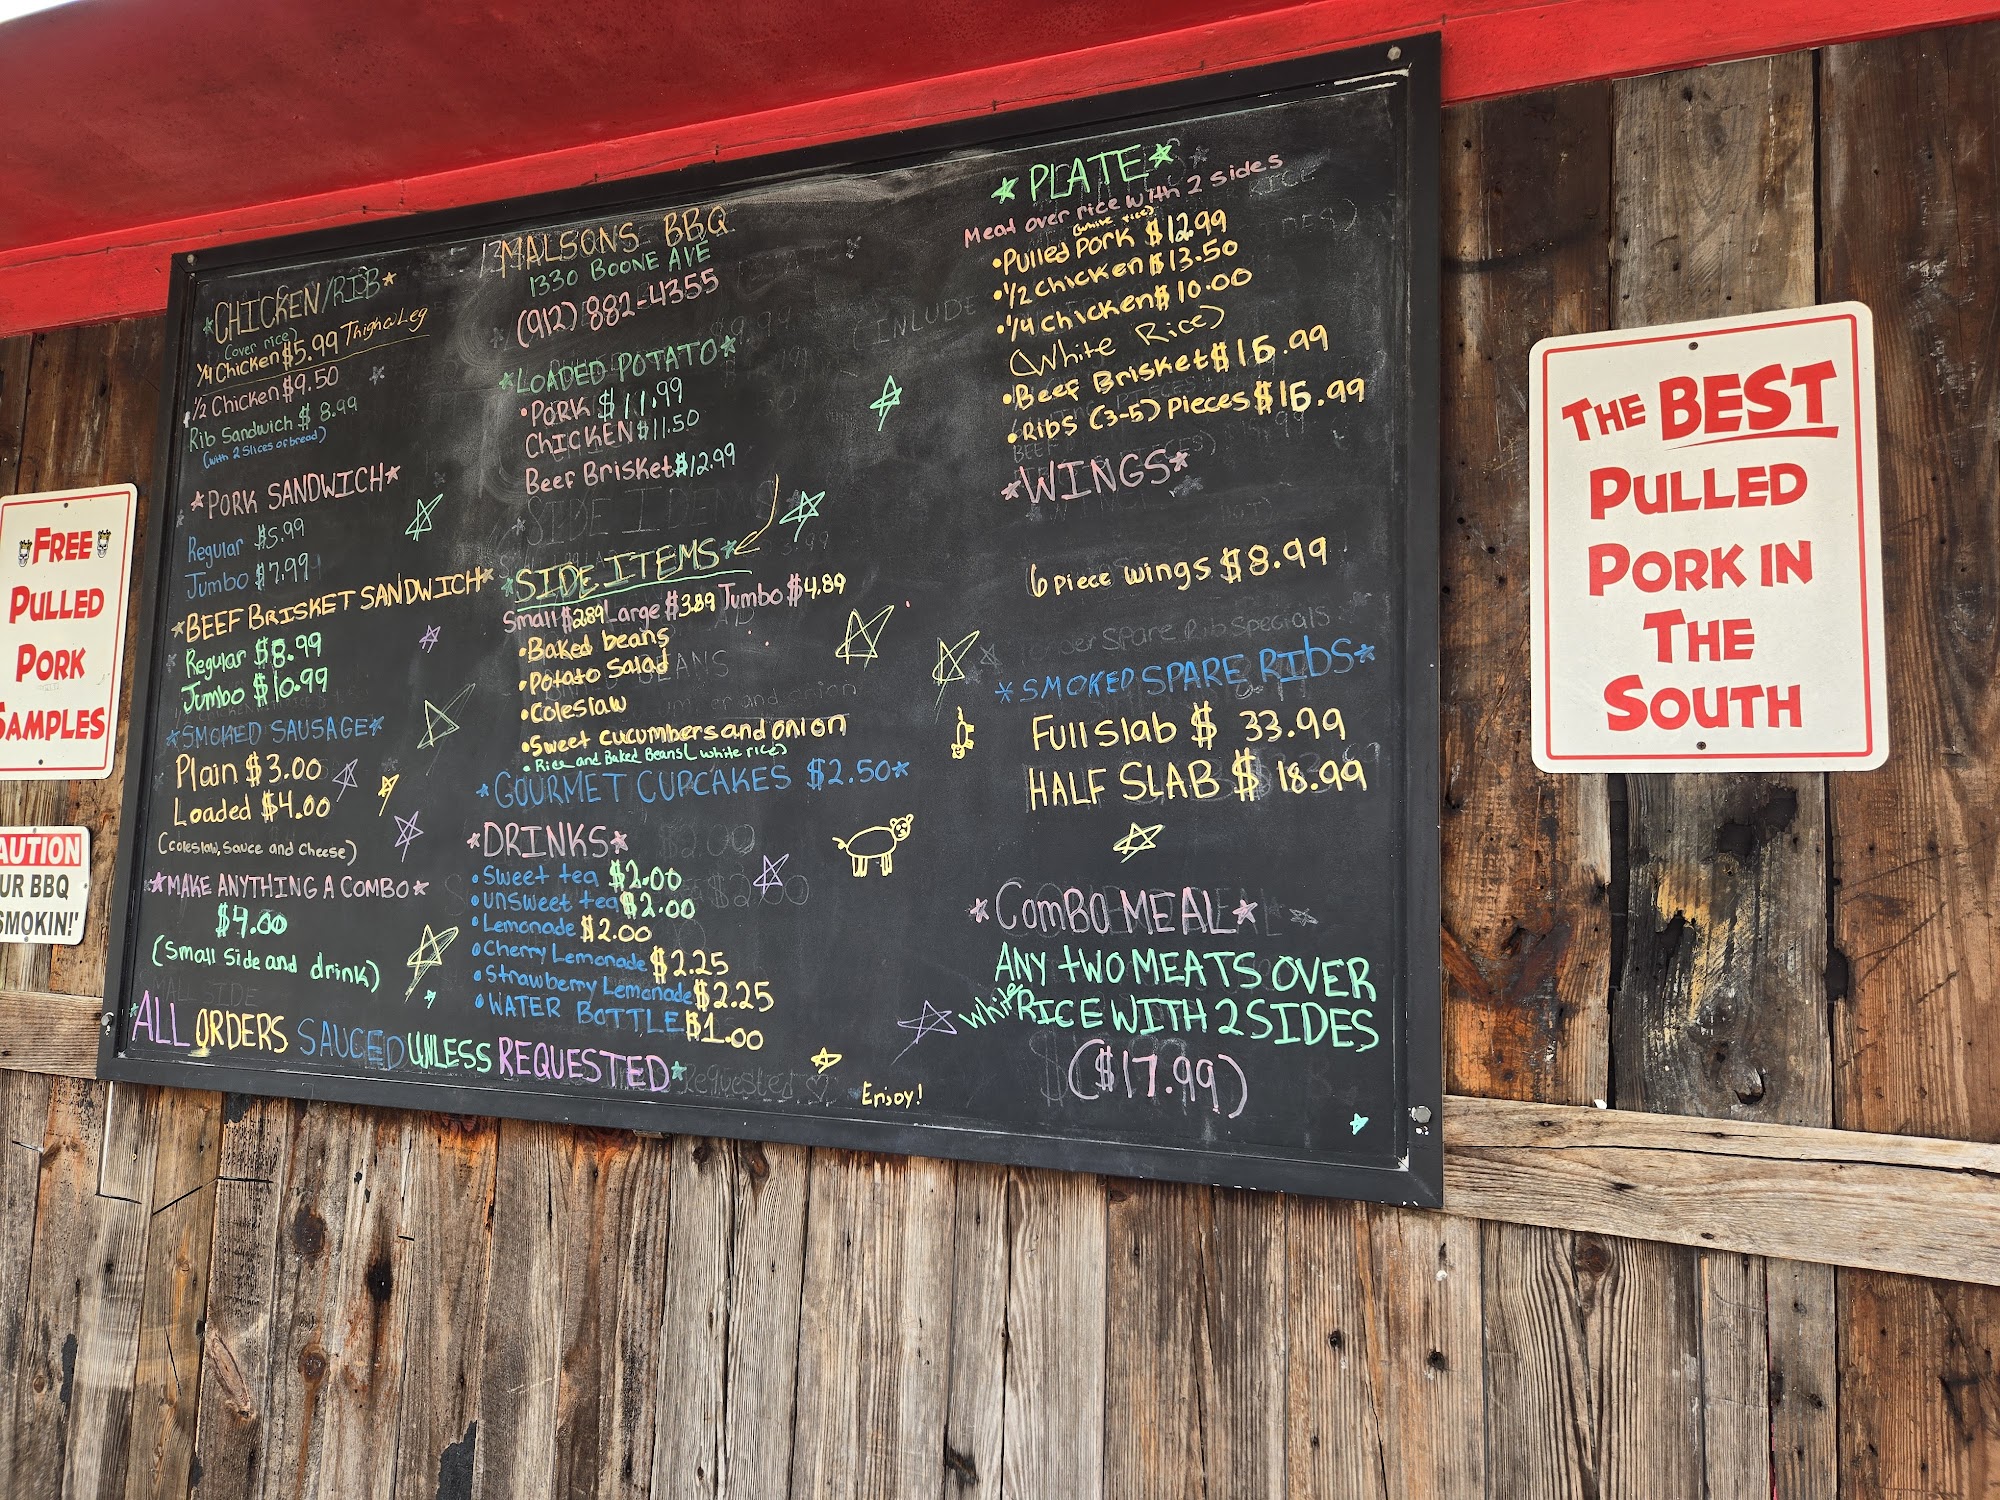 MALSONS BBQ
1330 BOONE AVE
(912) 882-4355
CHICKEN/RIB
(over rice)
1/4 Chicken $5.99 Thigh & Leg
1/2 Chicken $9.50
Rib Sandwich $8.99
(with 2 Slices of bread)
PORK SANDWICH
Regular $5.99
Jumbo $7.99
BEEF BRISKET SANDWICH
Regular $8.99
Jumbo $10.99
SMOKED SAUSAGE
Plain $3.00
Loaded $4.00
(coleslaw, sauce and cheese)
MAKE ANYTHING A COMBO
(small side and drink)
ALL ORDERS SAUCED UNLESS REQUESTED
LOADED POTATO
PORK $11.99
CHICKEN $11.50
Beef Brisket $12.99
SIDE ITEMS
Small $2.89 Large $3.89 Jumbo $4.89
Baked beans
Potato Salad
Coleslaw
Sweet cucumbers and onion
Rice and Baked Beans (white rice)
GOURMET CUPCAKES $2.50
DRINKS
Sweet tea $2.00
unsweet tea $2.00
Lemonade $2.00
Cherry Lemonade $2.25
Strawberry Lemonade $2.25
WATER BOTTLE $1.00
Enjoy!
PLATE
Meat over rice with 2 sides
(white rice)
Pulled Pork $12.99
1/2 chicken $13.50
1/4 chicken $10.00
(White Rice)
Beef Brisket $15.99
Ribs (3-5) pieces $15.99
WINGS
6 piece wings $8.99
SMOKED SPARE RIBS
Full slab $ 33.99
HALF SLAB $ 18.99
COMBO MEAL
ANY TWO MEATS OVER
White RICE WITH 2 SIDES
($17.99)
FREE
PULLED
PORK
SAMPLES
AUTION
UR BBQ
SMOKIN!'
THE BEST
PULLED
PORK IN
THE
SOUTH